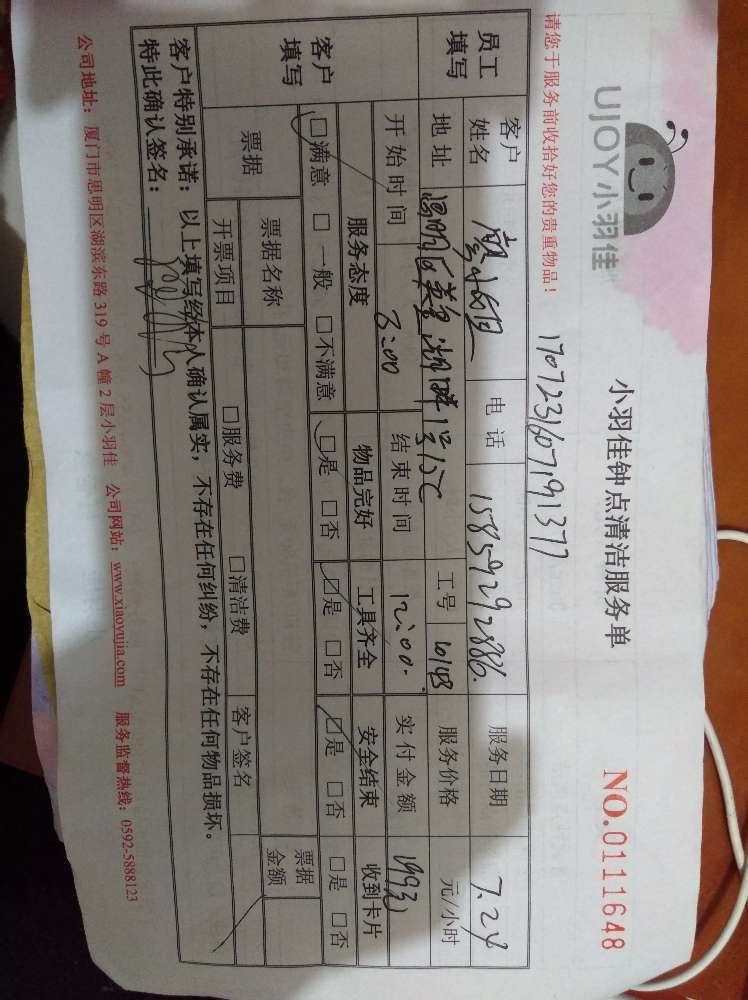 UJOY小羽佳
小羽佳钟点清洁服务单
NO.0111648
请您于服务前收拾好您的贵重物品！
1707231607191377
员工填写 客户姓名 电话 15859292886. 服务日期 7.24
地址 区 工号 6143 服务价格 元/小时
开始时间 3:00 结束时间 12:00. 实付金额 199元
客户填写 服务态度 物品完好 工具齐全 安全结束 收到卡片
☑满意 □一般 □不满意 ☑是 □否 ☑是 □否 ☑是 □否 □是 □否
票据 票据名称 客户签名 票据金额
开票项目 □服务费 □清洁费
客户特别承诺：以上填写经本人确认属实，不存在任何纠纷，不存在任何物品损坏。
特此确认签名：
公司地址：厦门市思明区湖滨东路319号A幢2层小羽佳 公司网站：www.xiaoyujia.com 服务监督热线：0592-5888123